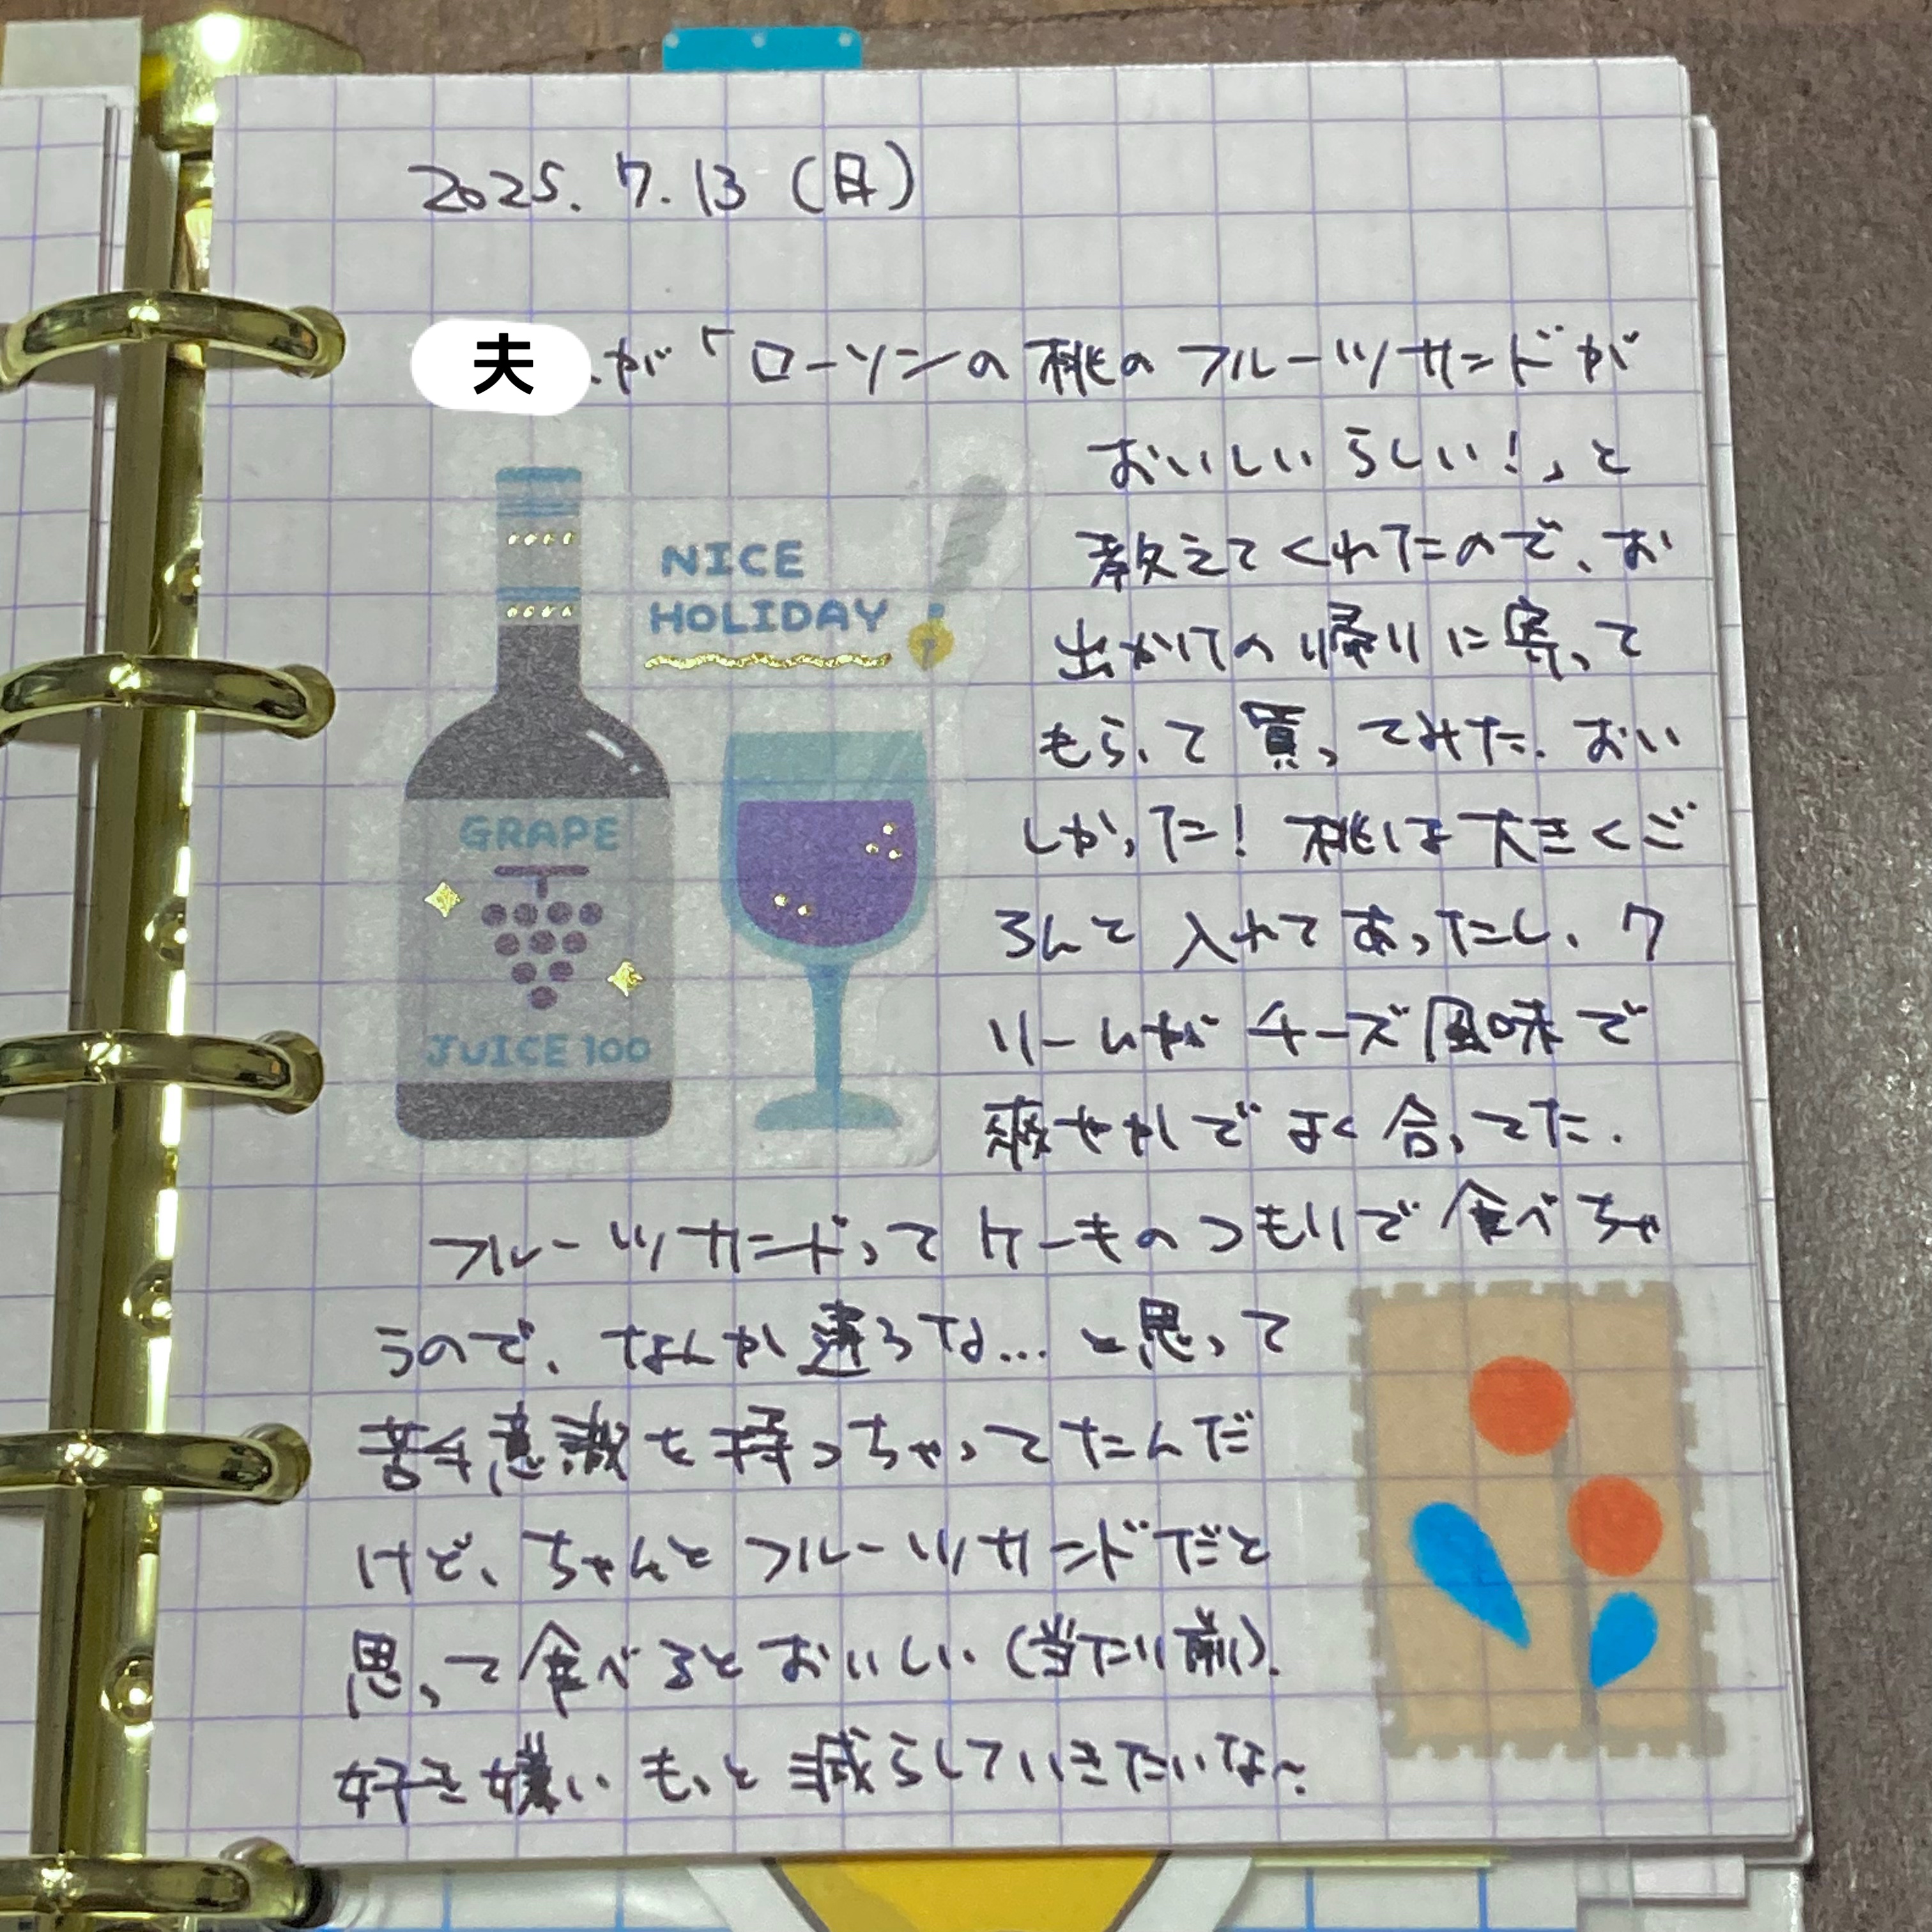 2025.7.13(日)
夫が「ローソンの桃のフルーツサンドが
おいしいらしい!」と
教えてくれたので、お
出かけの帰りに寄って
もらって買ってみた。おい
しかった!桃は大きくご
ろんと入れてあったし、ク
リームがチーズ風味で
爽やかでよく合ってた。
フルーツサンドってケーキのつもりで食べちゃ
うので、なんか違うな…と思って
苦手意識を持っちゃってたんだ
けど、ちゃんとフルーツサンドだと
思って食べるとおいしい(当たり前)。
好き嫌いもっと減らしていきたいな〜
NICE
HOLIDAY
GRAPE
JUICE 100